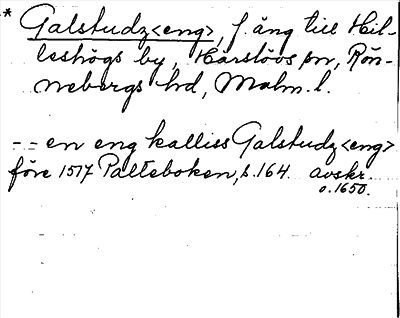 * Galstudz<eng>, f. äng till Hil-
leshögs by, Härslövs sn, Rön-
nebergs hd, Malm. l.
-- en eng kalliss Galstudz<eng>
före 1517 Palteboken, s. 164. avskr.
o. 1650.